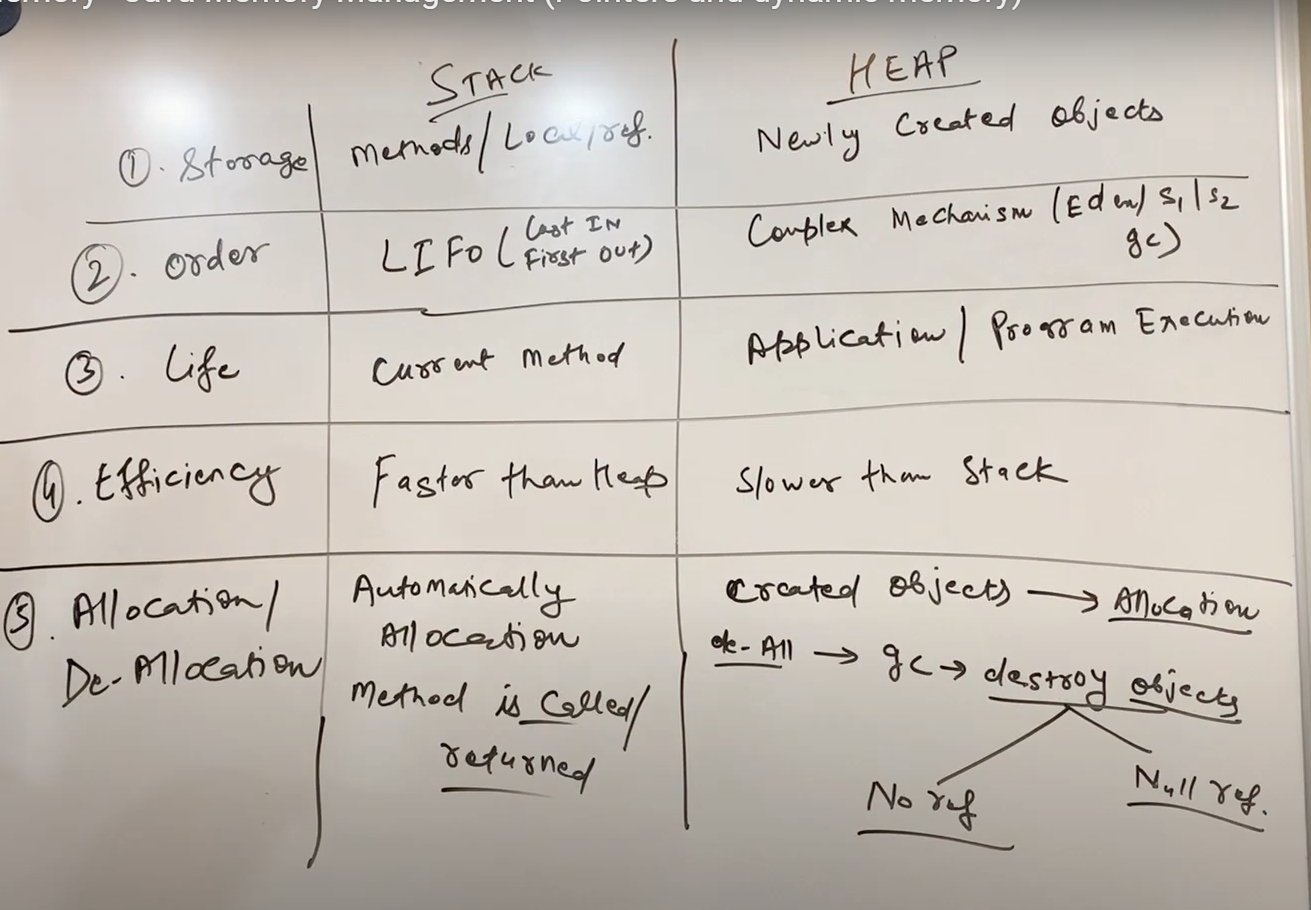 Java Memory Management (Pointers and dynamic memory)
STACK
HEAP
①. Storage
Methods/Local/ref.
Newly Created Objects
②. Order
LIFO (Last IN
First Out)
Complex Mechanism (Eden/ S1|S2
gc)
③. Life
Current Method
Application/ Program Execution
④. Efficiency
Faster than Heap
Slower than Stack
⑤. Allocation/
De-Allocation
Automatically
Allocation
Method is Called/
returned
Created Objects → Allocation
de-All → gc → destroy objects
No ref
Null ref.